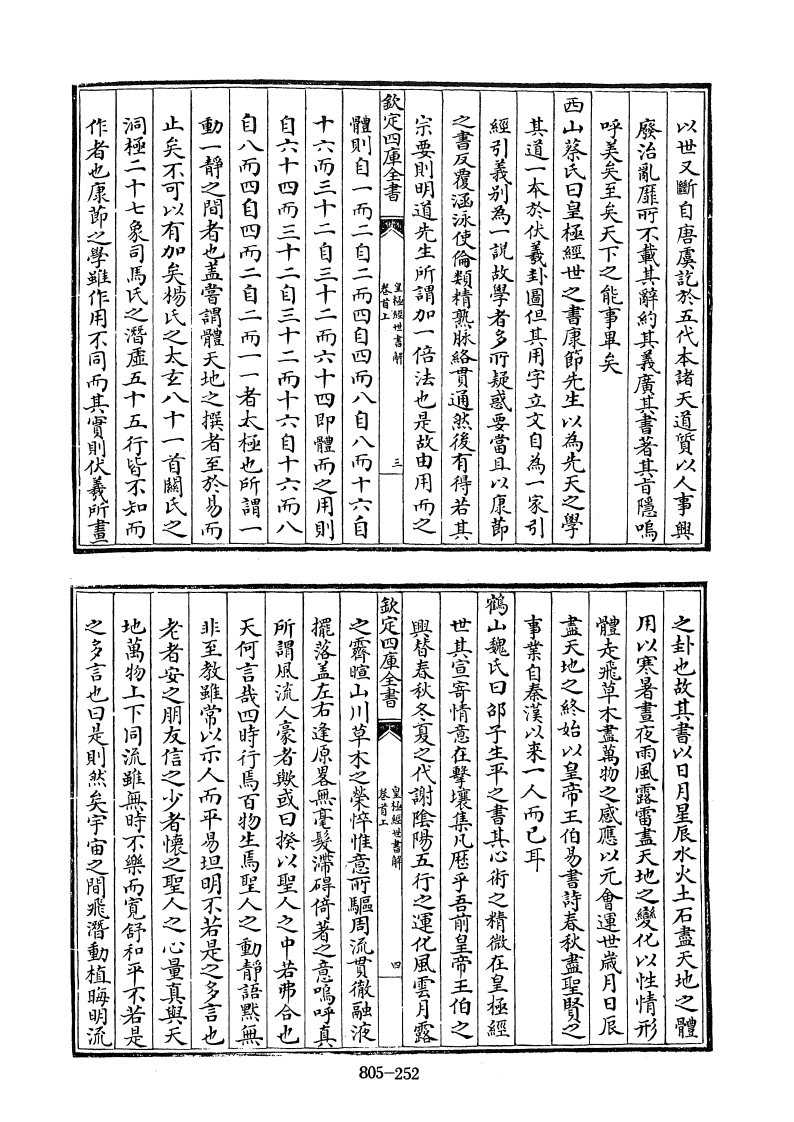 以世又斷自唐虞訖於五代本諸天道質以人事興
廢治亂靡所不載其辭約其義廣其書著其旨隱嗚
呼美矣至矣天下之能事畢矣
西山蔡氏曰皇極經世之書康節先生以為先天之學
其道一本於伏羲卦圖但其用字立文自為一家引
經引義别為一說故學者多所疑惑要當且以康節
之書反覆涵泳使倫類精熟脉絡貫通然後有得若其
宗要則明道先生所謂加一倍法也是故由用而之
欽定四庫全書
皇極經世書解
卷首上
三
體則自一而二自二而四自四而八自八而十六自
十六而三十二自三十二而六十四即體而之用則
自六十四而三十二自三十二而十六自十六而八
自八而四自四而二自二而一一者太極也所謂一
動一靜之間者也蓋嘗謂體天地之撰者至於易而
止矣不可以有加矣楊氏之太玄八十一首關氏之
洞極二十七象司馬氏之潛虛五十五行皆不知而
作者也康節之學雖作用不同而其實則伏羲所畫
之卦也故其書以日月星辰水火土石盡天地之體
用以寒暑晝夜雨風露雷盡天地之變化以性情形
體走飛草木盡萬物之感應以元會運世歳月日辰
盡天地之終始以皇帝王伯易書詩春秋盡聖賢之
事業自秦漢以來一人而已耳
鶴山魏氏曰邵子生平之書其心術之精微在皇極經
世其宣寄情意在擊壤集凡歷乎吾前皇帝王伯之
興替春秋冬夏之代謝陰陽五行之運化風雲月露
欽定四庫全書
皇極經世書解
卷首上
四
之霽暄山川草木之榮悴惟意所驅周流貫徹融液
擺落蓋左右逢原畧無毫髮滯碍倚著之意嗚呼真
所謂風流人豪者歟或曰揆以聖人之中若弗合也
天何言哉四時行焉百物生焉聖人之動靜語默無
非至教雖常以示人而平易坦明不若是之多言也
老者安之朋友信之少者懷之聖人之心量真與天
地萬物上下同流雖無時不樂而寬舒和平不若是
之多言也曰是則然矣宇宙之間飛潛動植晦明流
805-252